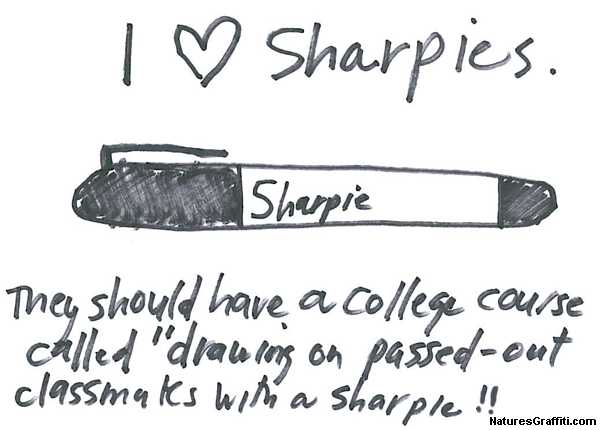 I ♡ Sharpies.
Sharpie
They should have a college course
called "drawing on passed-out
classmates with a sharpie!!
NaturesGraffiti.com